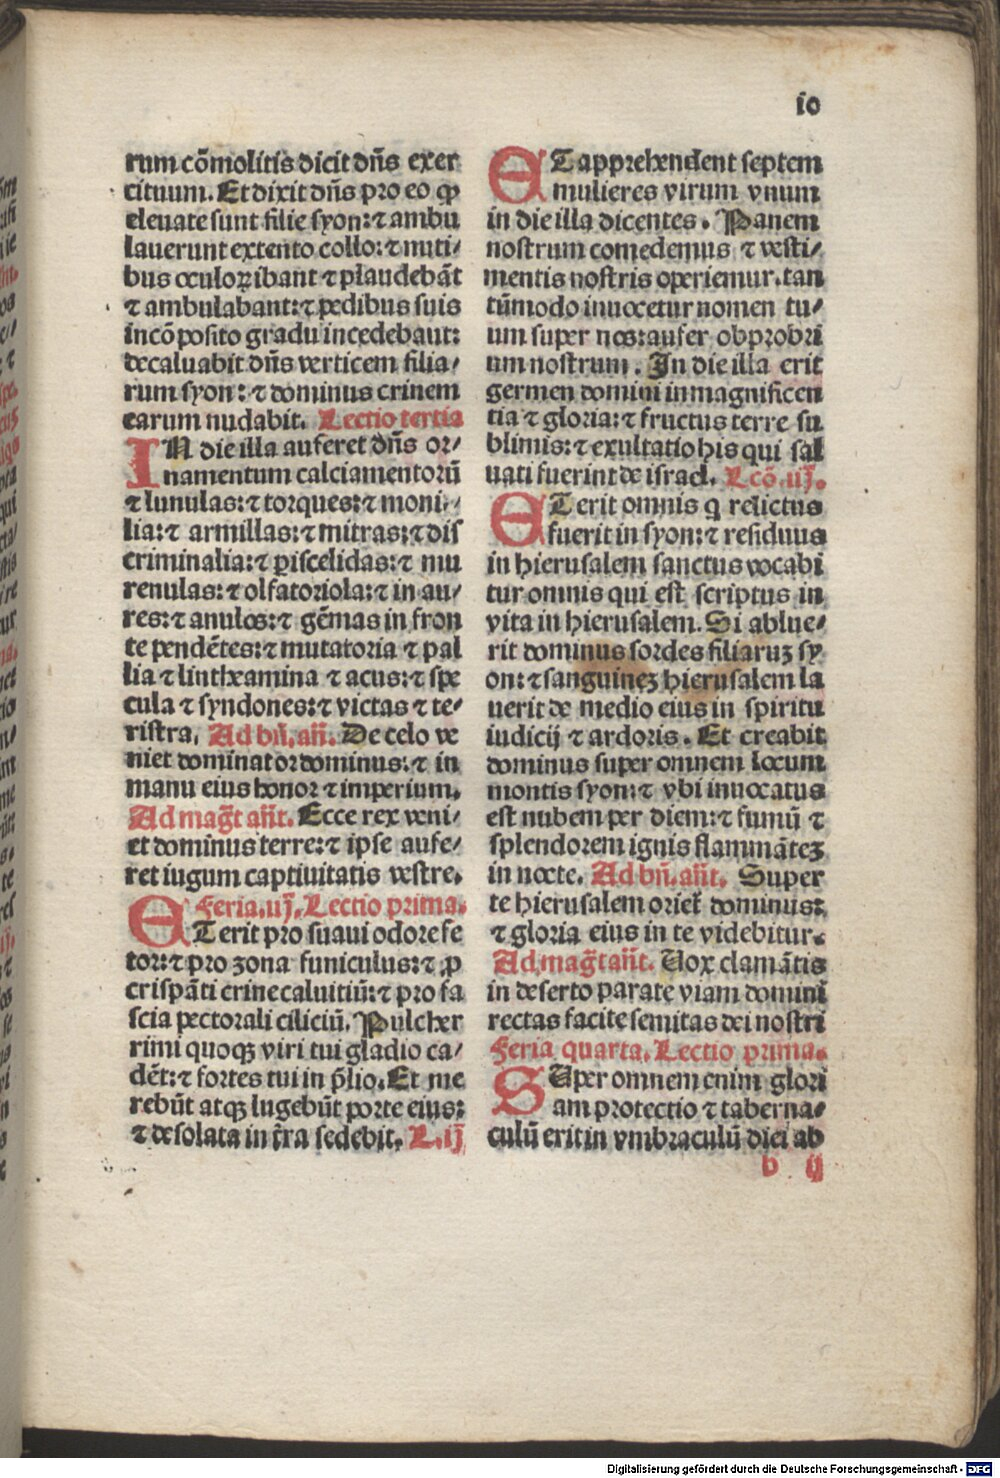 10
rum cōmolitis dicit dn̄s exer
cituum. Et dixit dn̄s pro eo ꝙ
eleuate sunt filie syon: ⁊ ambu
lauerunt extento collo: ⁊ nuti⸗
bus oculoꝝ ibant ⁊ plaudebāt
⁊ ambulabant: ⁊ pedibus suis
incōposito gradu incedebant:
decaluabit dn̄s verticem filia⸗
rum syon: ⁊ dominus crinem
earum nudabit. Lectio tertia
IN die illa auferet dn̄s or⸗
namentum calciamentorū
⁊ lunulas: ⁊ torques: ⁊ moni⸗
lia: ⁊ armillas: ⁊ mitras: ⁊ dis
criminalia: ⁊ ꝑiscelidas: ⁊ mu
renulas: ⁊ olfatoriola: ⁊ in au⸗
res: ⁊ anulos: ⁊ gēmas in fron
te pendētes: ⁊ mutatoria ⁊ pal
lia ⁊ lintheamina ⁊ acus: ⁊ spe
cula ⁊ syndones: ⁊ victas ⁊ te⸗
ristra. Ad bn̄. an̄. De celo ve
niet dominator dominus: ⁊ in
manu eius honor ⁊ imperium.
Ad maḡt an̄t. Ecce rex veni⸗
et dominus terre: ⁊ ipse aufe⸗
ret iugum captiuitatis vestre.
Feria. iij. Lectio prima.
ET erit pro suaui odore fe
tor: ⁊ pro zona funiculus: ⁊ ꝓ
crispāti crine caluitiū: ⁊ pro fa
scia pectorali ciliciū. Pulcher
rimi quoqꝫ viri tui gladio ca⸗
dēt: ⁊ fortes tui in p̄lio. Et me
rebūt atqꝫ lugebūt porte eius:
⁊ desolata in t̄ra sedebit. L. ij
ET apprehendent septem
mulieres virum vnum
in die illa dicentes. Panem
nostrum comedemus ⁊ vesti⸗
mentis nostris operiemur. tan
tūmodo inuocetur nomen tu⸗
um super nos: aufer obprobri
um nostrum. In die illa erit
germen domini in magnificen
tia ⁊ gloria: ⁊ fructus terre su
blimis: ⁊ exultatio his qui sal
uati fuerint de israel. Lcō. iij.
ET erit omnis q̄ relictus
fuerit in syon: ⁊ residuus
in hierusalem sanctus vocabi
tur omnis qui est scriptus in
vita in hierusalem. Si ablue⸗
rit dominus sordes filiaruꝫ sy
on: ⁊ sanguineꝫ hierusalem la
uerit de medio eius in spiritu
iudicij ⁊ ardoris. Et creabit
dominus super omnem locum
montis syon: ⁊ vbi inuocatus
est nubem per diem: ⁊ fumū ⁊
splendorem ignis flammāteꝫ
in nocte. Ad bn̄. an̄t. Super
te hierusalem oriet᷑ dominus:
⁊ gloria eius in te videbitur.
Ad maḡt an̄t. Uox clamātis
in deserto parate viam domini
rectas facite semitas dei nostri
Feria quarta. Lectio prima.
SUper omnem enim glori
am protectio ⁊ taberna⸗
culū erit in vmbraculū diei ab
b ij
Digitalisierung gefördert durch die Deutsche Forschungsgemeinschaft - DFG